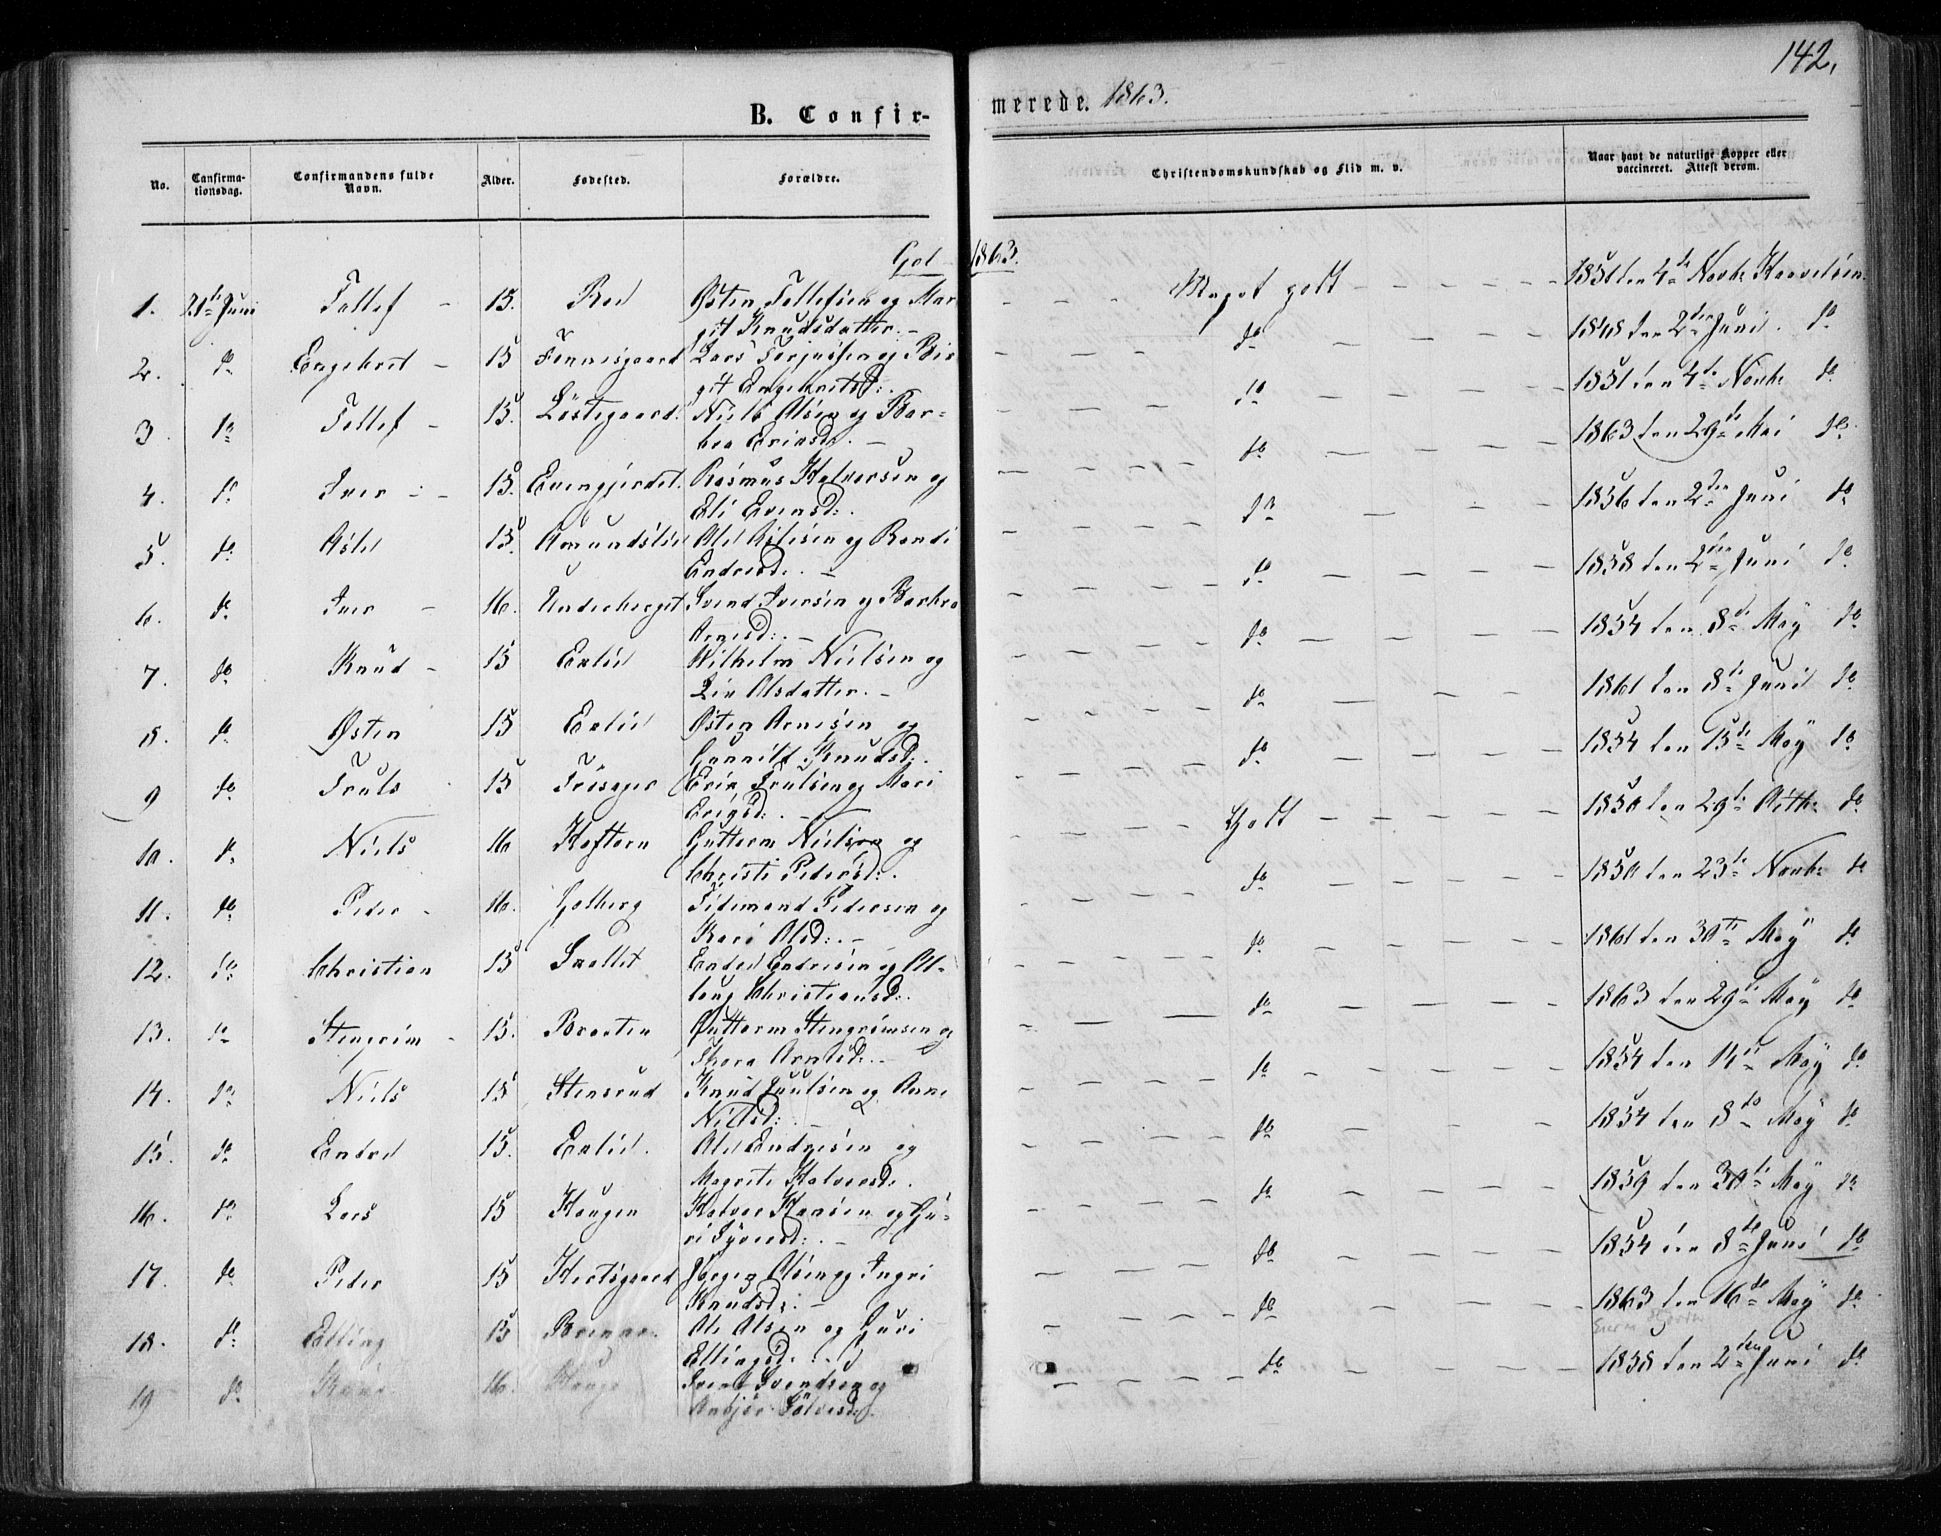 142.
B. Confir-
merede. 1863.
No.
Confirma-
tionsdag.
Confirmandens fulde
Navn.
Alder.
Fødested.
Forældre.
Christendomskundskab og Flid m. v.
Naar havt de naturlige Kopper eller
vaccineret. Attest derom.
Gol 1863.
1. 21de Juni Tollef 15. Roe Østen Tollefsen og Mar
git Knudsdatter. Meget godt 1851 den 4de Novbr
2. do Engebret 15 Lars Torjusen og Bir
git Engebretsd: do 1848 den 2den Juni. do
3. do Tollef 15. Niels Olsen og Bar=
bra Eriksd. do 1851 den 4de Novbr do
4. do Iver 15. Evengjerdet. Rasmus Halvorsen og
Eli Evensd: do 1863 den 29de Mai do
5. do Aslel 15. Amundslie Ole Aslesen og Randi
Endresd: do 1856 den 2den Juni do
6. do Iver 16. Underberget Svend Iversen og Barbra
Arnesd: do 1858 den 2den Juni do
7. do Knud 15 Enlid Vilhelm Nielsen og
Liv Olsdatter. do 1854 den 8de May do
8. do Østen 15 Enlid Østen Arnesen og
Gunnild Knudsd: do 1861 den 8de Juni do
9 do Truls 15 Trøsager Erik Trulsen og Mari
Eriksd: do 1854 den 15de May do
10. do Niels 16 Koftern Guttorm Nielsen og
Christi Pedersd: Godt 1850 den 29de Octbr do
11. do Peder 16. Golberg Tidemand Pedersen og
Kari Olsd: do 1850 den 23de Novbr do
12. do Christian 15 Endre Endresen og Ol-
laug Christiansd: do 1861 den 30te May do
13. do Stengrim 15. Braaten Guttorm Stengrimsen og
Thora Arnesd: do 1863 den 29de May do
14. do Niels 15 Stensrud Knud Juulsen og Anne
Nielsd: do 1854 den 14de May do
15. do Endre 15. Enlid. Ole Endresen og
Magrete Halvorsd. do 1854 den 8de May do
16. do Lars 15 Haugen Halvor Larsen og Gu=
ri Syversd: do 1859 den 30te May do
17. do Peder 15 Hertsgaard Jørgen Olsen og Ingri
Knudsd: do 1854 den 8de Juni do
18. do Elling 15 Ole Olsen og Guri
Ellingsd: do 1863 den 16de May do
19 do Knud 16. Hauge Svend Svendsen og
Anbjør Sølvesd: do 1858 den 2den Juni do